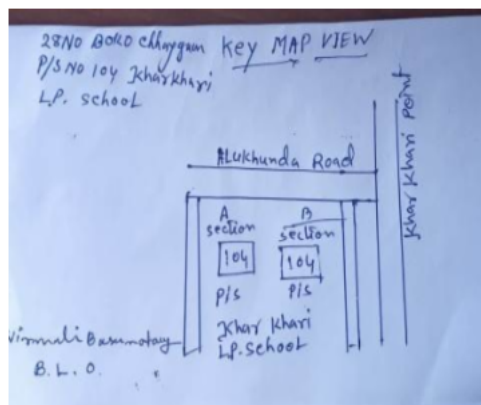 28NO BOKO Chhaygaon Key MAP VIEW
P/S NO 104 Kharkhari
L.P. school
ALukhunda Road
Khar Khari Point
A section
B section
104
104
P/S
P/S
Khar Khari
LP. School
Basumatary
B. L. O.